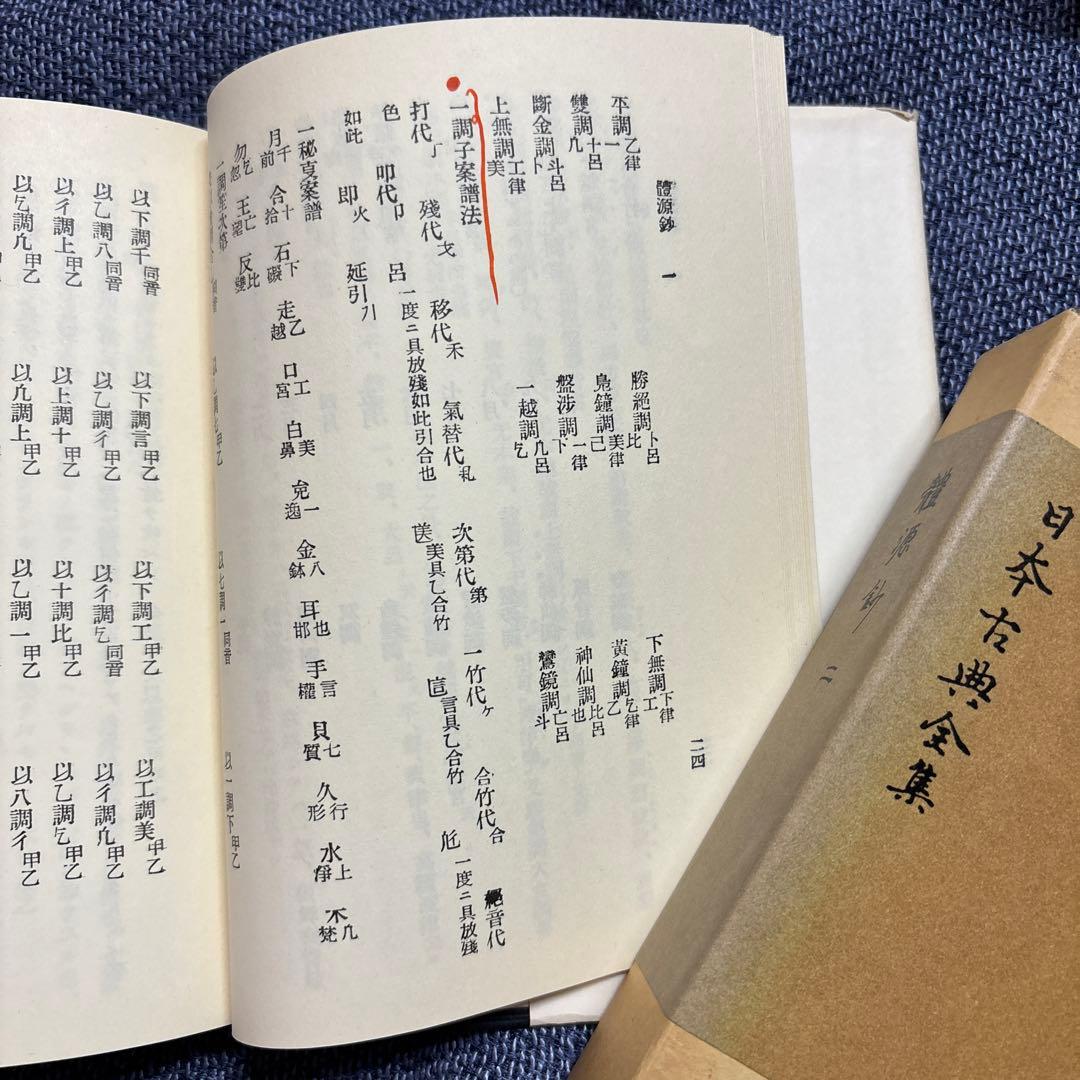 體源鈔 一 二四
平調 乙律 一 勝絕調 卜呂 比 下無調 下律 工
雙調 十呂 九 鳧鐘調 美律 己 黃鐘調 乞律 乙
斷金調 斗呂 卜 盤涉調 一律 下 神仙調 比呂 也
上無調 工律 美 一越調 九呂 乞 鸞鏡調 亡呂 斗
一調子案譜法
打代 殘代 戈 移代 禾 氣替代 札 次第代 第 一竹代 ヶ 合竹代 合 絕音代
色 叩代 卩 呂 一度ニ具放殘如此引合也 美具乙合竹 言具乙合竹 一度ニ具放殘
如此 卽 火 延引
一秘㕝案譜
月 千前 合 十拾 石 下礙 走 乙越 口 工宮 白 美鼻 免 一逸 金 八鉢 耳 也邯 手 言權 貝 七質 久 行形 水 上淨 不 九梵
勿 乞忽 王 亡望 反 比變
以一調下 甲乙
以下調千 同音 以下調言 甲乙 以下調工 甲乙 以工調美 甲乙
以乙調八 同音 以乙調彳 甲乙 以彳調乞 同音 以彳調九 甲乙
以彳調上 甲乙 以上調十 甲乙 以十調比 甲乙 以乙調乞 甲乙
以乞調九 甲乙 以九調上 甲乙 以乙調一 甲乙 以八調彳 甲乙
日本古典全集
體源鈔 二